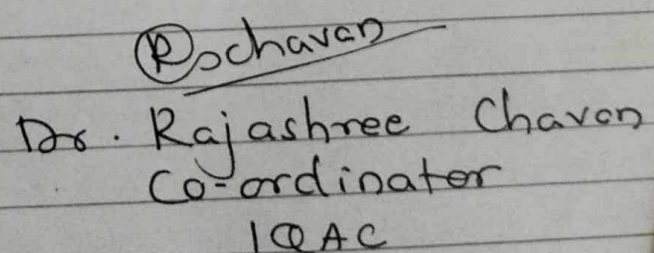 Rschavan
Dr. Rajashree Chavan
Co-ordinator
IQAC